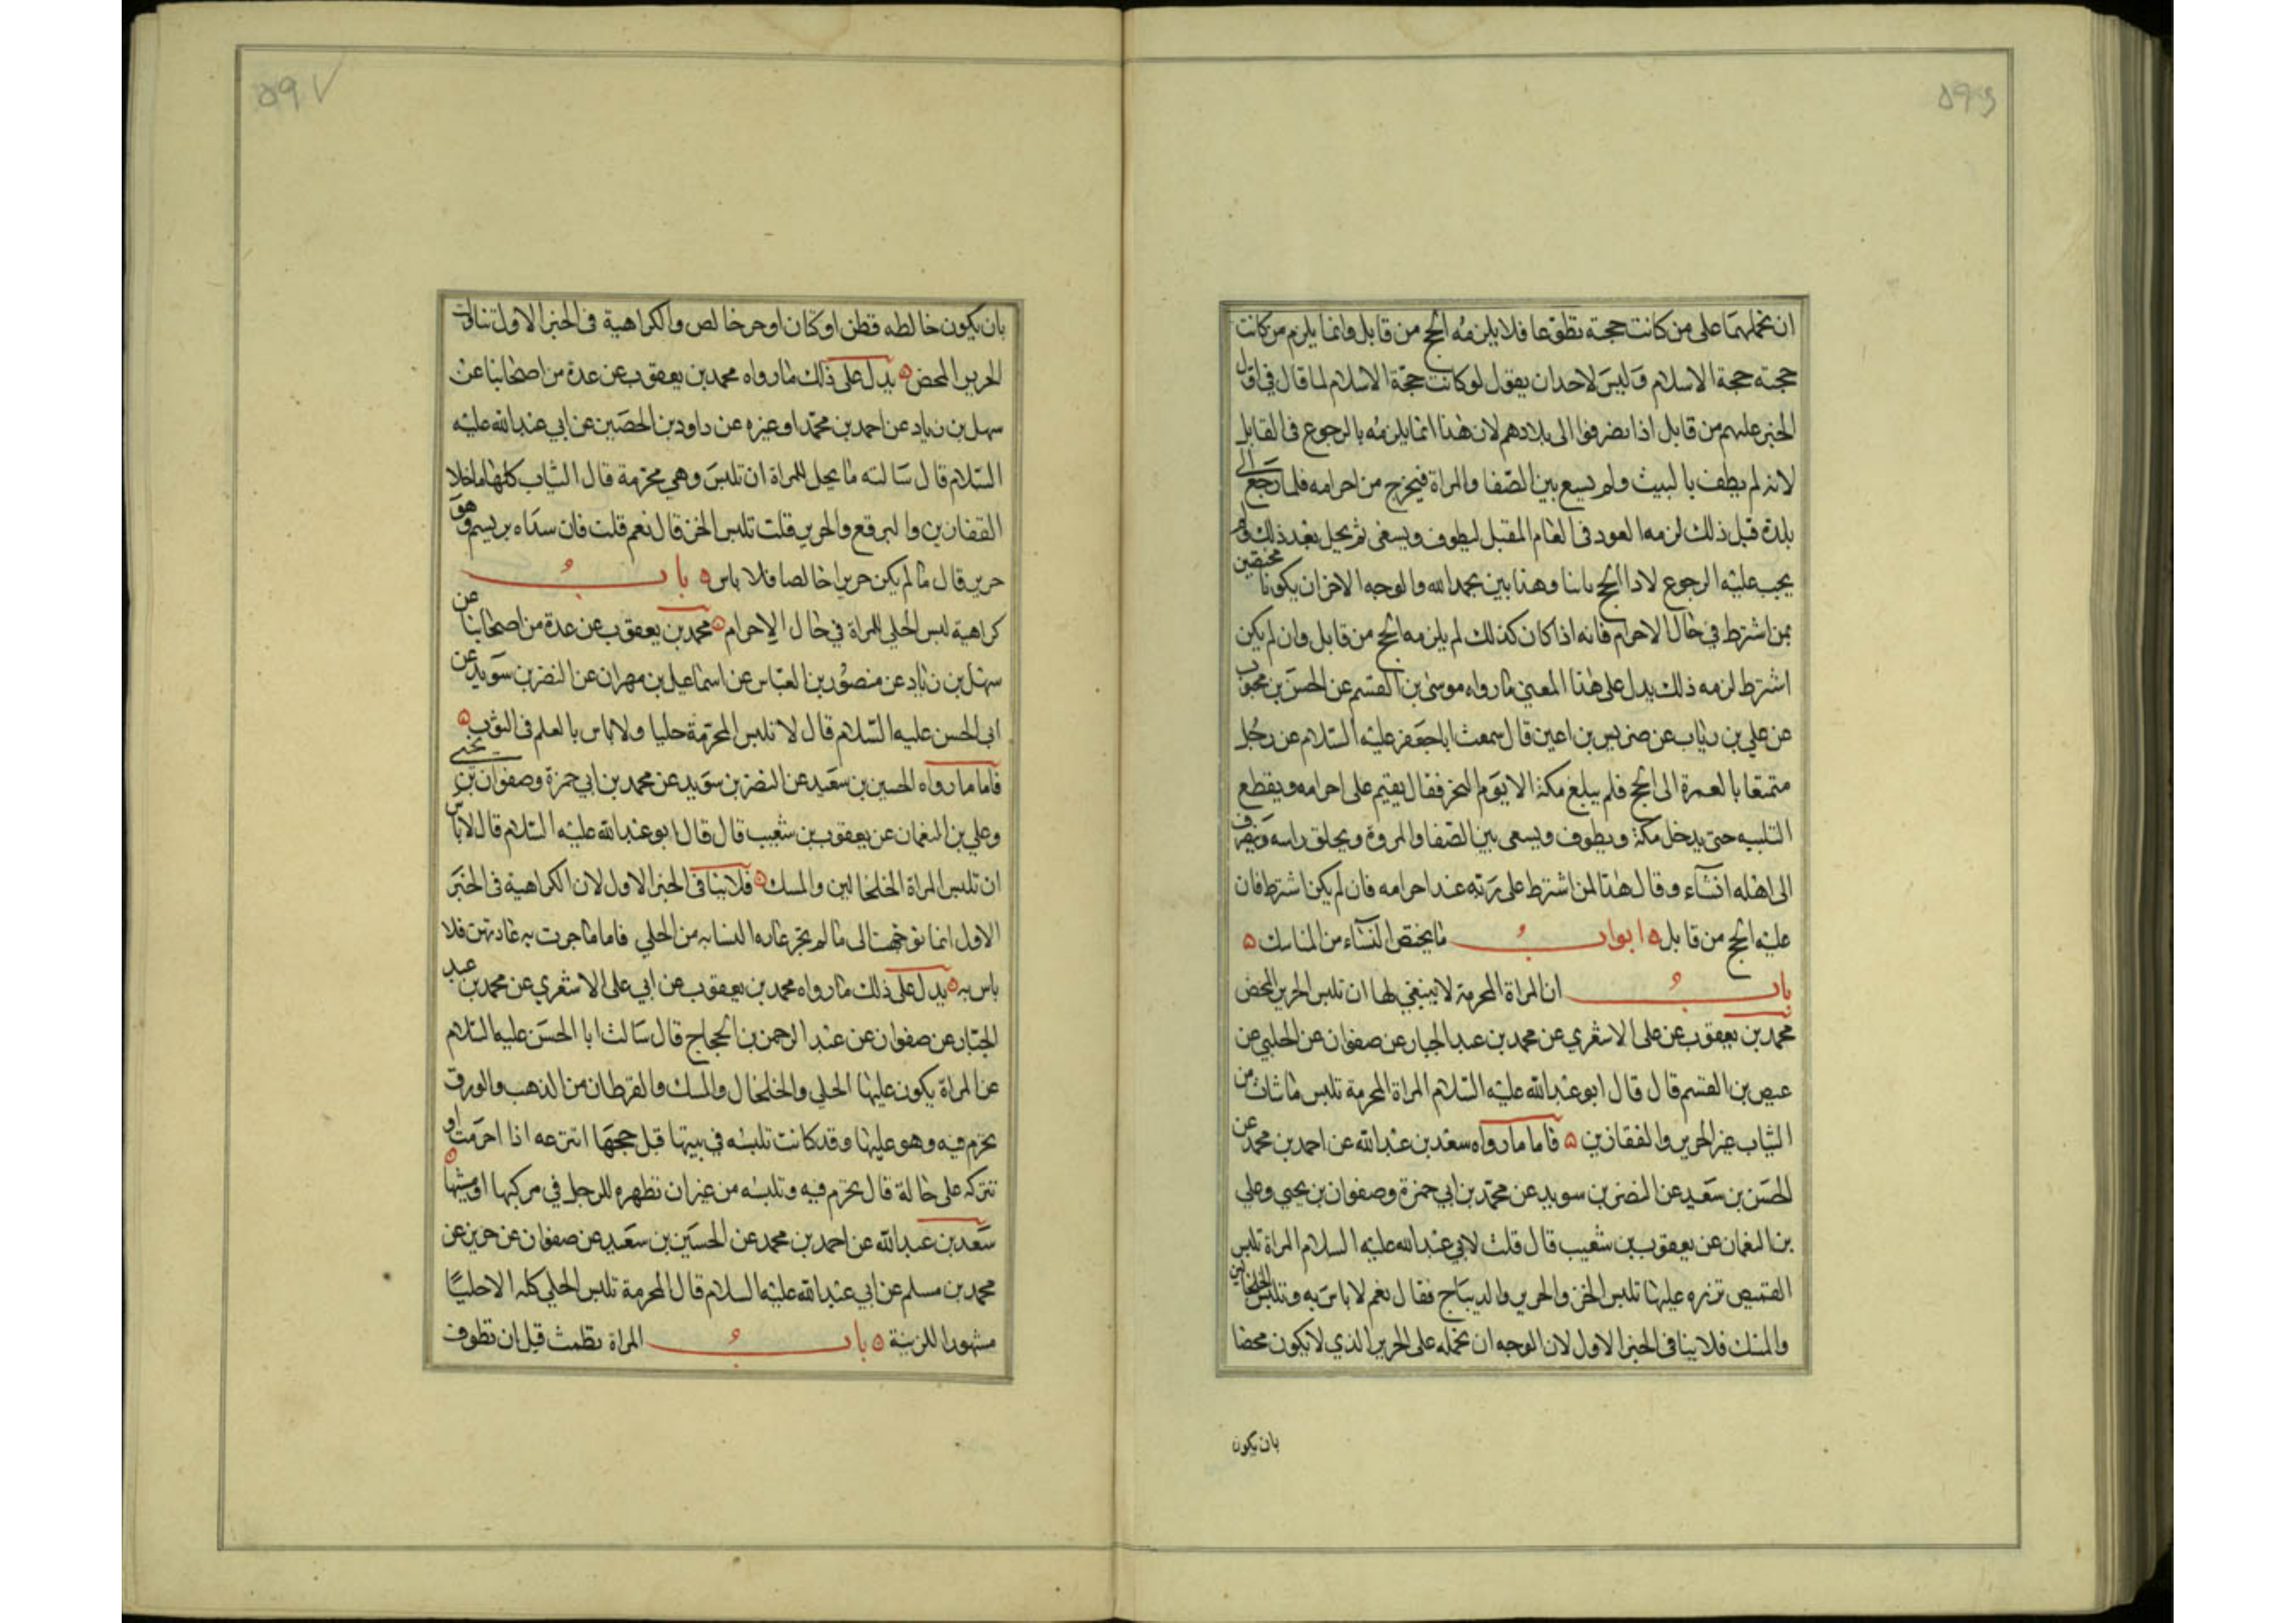 ٥٩٦
ان نحملهما على من كانت حجته تطوعا فلا يلزمه الحج من قابل وانما يلزم من كانت
حجته حجة الاسلام وليس لاحد ان يقول لو كانت حجة الاسلام لما قال في اول
الخبر عليهم من قابل اذا انصرفوا الى بلادهم لان هذا انما يلزمه بالرجوع في القابل
لانه لم يطف بالبيت ولم يسع بين الصفا والمراة فيخرج من احرامه فلما رجع الى
بلدة قبل ذلك لزمه العود في العام المقبل ليطوف ويسعى ثم يحل بعد ذلك ولم
يجب عليه الرجوع لادا الحج ثانيا وهذا بين بحمد الله والوجه الاخر ان يكونا مختصين
بمن اشترط في حال الاحرام فانه اذا كان كذلك لم يلزمه الحج من قابل وان لم يكن
اشترط لزمه ذلك يدل على هذا المعنى ما رواه موسى بن القسم عن الحسن بن محبوب
عن علي بن رئاب عن ضريس بن اعين قال سمعت ابا جعفر عليه السلام عن رجل
متمتعا بالعمرة الى الحج فلم يبلغ مكة الا يوم النحر فقال يقيم على احرامه ويقطع
التلبيه حتى يدخل مكة ويطوف ويسعى بين الصفا والمروة ويحلق راسه وينصرف
الى اهله ان شاء وقال هذا لمن اشترط على ربه عند احرامه فان لم يكن اشترط فان
عليه الحج من قابل ٥ ابواب ما يختص النساء من المناسك ٥
باب ان المراة المحرمة لا ينبغي لها ان تلبس الحرير المحض
محمد بن يعقوب عن على الاشعري عن محمد بن عبد الجبار عن صفوان عن الحلبي عن
عيص بن القسم قال قال ابو عبد الله عليه السلام المراة المحرمة تلبس ما شات من
الثياب غير الحرير والقفازين ٥ فاما ما رواه سعد بن عبد الله عن احمد بن محمد عن
الحسن بن سعيد عن النضر بن سويد عن محمد بن ابي حمزة وصفوان بن يحيى وعلي
بن النعمان عن يعقوب بن شعيب قال قلت لابي عبد الله عليه السلام المراة تلبس
القميص تزره عليها تلبس الخز والحرير والديباج فقال نعم لا باس به وتلبس الخلخالين
والمسك فلا ينافى الخبر الاول لان الوجه ان نحمله على الحرير الذي لا يكون محضا
بان يكون
٥٩٧
بان يكون خالطه قطن او كان او خز خالص والكراهية في الخبر الاول تناولت
الحرير المحض ٥ يدل على ذلك ما رواه محمد بن يعقوب عن عدة من اصحابنا عن
سهل بن زياد عن احمد بن محمد او غيره عن داود بن الحصين عن ابي عبد الله عليه
السلام قال سالته ما يحل للمراة ان تلبس وهي محرمة قال الثياب كلها ما خلا
القفازين والبرقع والحرير قلت تلبس الخز قال نعم قلت فان سداه بريسم وهو
حرير قال ما لم يكن حريرا خالصا فلا باس ٥ باب
كراهية لبس الحلي للمراة في حال الاحرام ٥ محمد بن يعقوب عن عدة من اصحابنا عن
سهل بن زياد عن منصور بن العباس عن اسماعيل بن مهران عن النضر بن سويد عن
ابى الحسن عليه السلام قال لا تلبس المحرمة حليا ولا باس بالعلم في الثوب ٥
فاما ما رواه الحسين بن سعيد عن النضر بن سويد عن محمد بن ابي حمزة وصفوان بن يحيى
وعلي بن النعمان عن يعقوب بن شعيب قال قال ابو عبد الله عليه السلام قال لا باس
ان تلبس المراة الخلخالين والمسك ٥ فلا ينافى الخبر الاول لان الكراهية في الخبر
الاول انما توجهت الى ما لم يجر عاده النسا به من الحلي فاما ما جرت به عادتهن فلا
باس به ٥ يدل على ذلك ما رواه محمد بن يعقوب عن ابي على الاشعري عن محمد بن عبد
الجبار عن صفوان عن عبد الرحمن بن الحجاج قال سالت ابا الحسن عليه السلام
عن المراة يكون عليها الحلي والخلخال والمسك والقرطان من الذهب والورق
تحرم فيه وهو عليها وقد كانت تلبسه في بيتها قبل حجها انتزعه اذا احرمت او
تتركه على حالة قال تحرم فيه وتلبسه من غير ان تظهره للرجل في مركبها او مشيها ٥
سعد بن عبد الله عن احمد بن محمد عن الحسين بن سعيد عن صفوان عن حريز عن
محمد بن مسلم عن ابي عبد الله عليه السلام قال المحرمة تلبس الحلي كله الا حليا
مشهورا للزينة ٥ باب المراة تطمث قبل ان تطوف